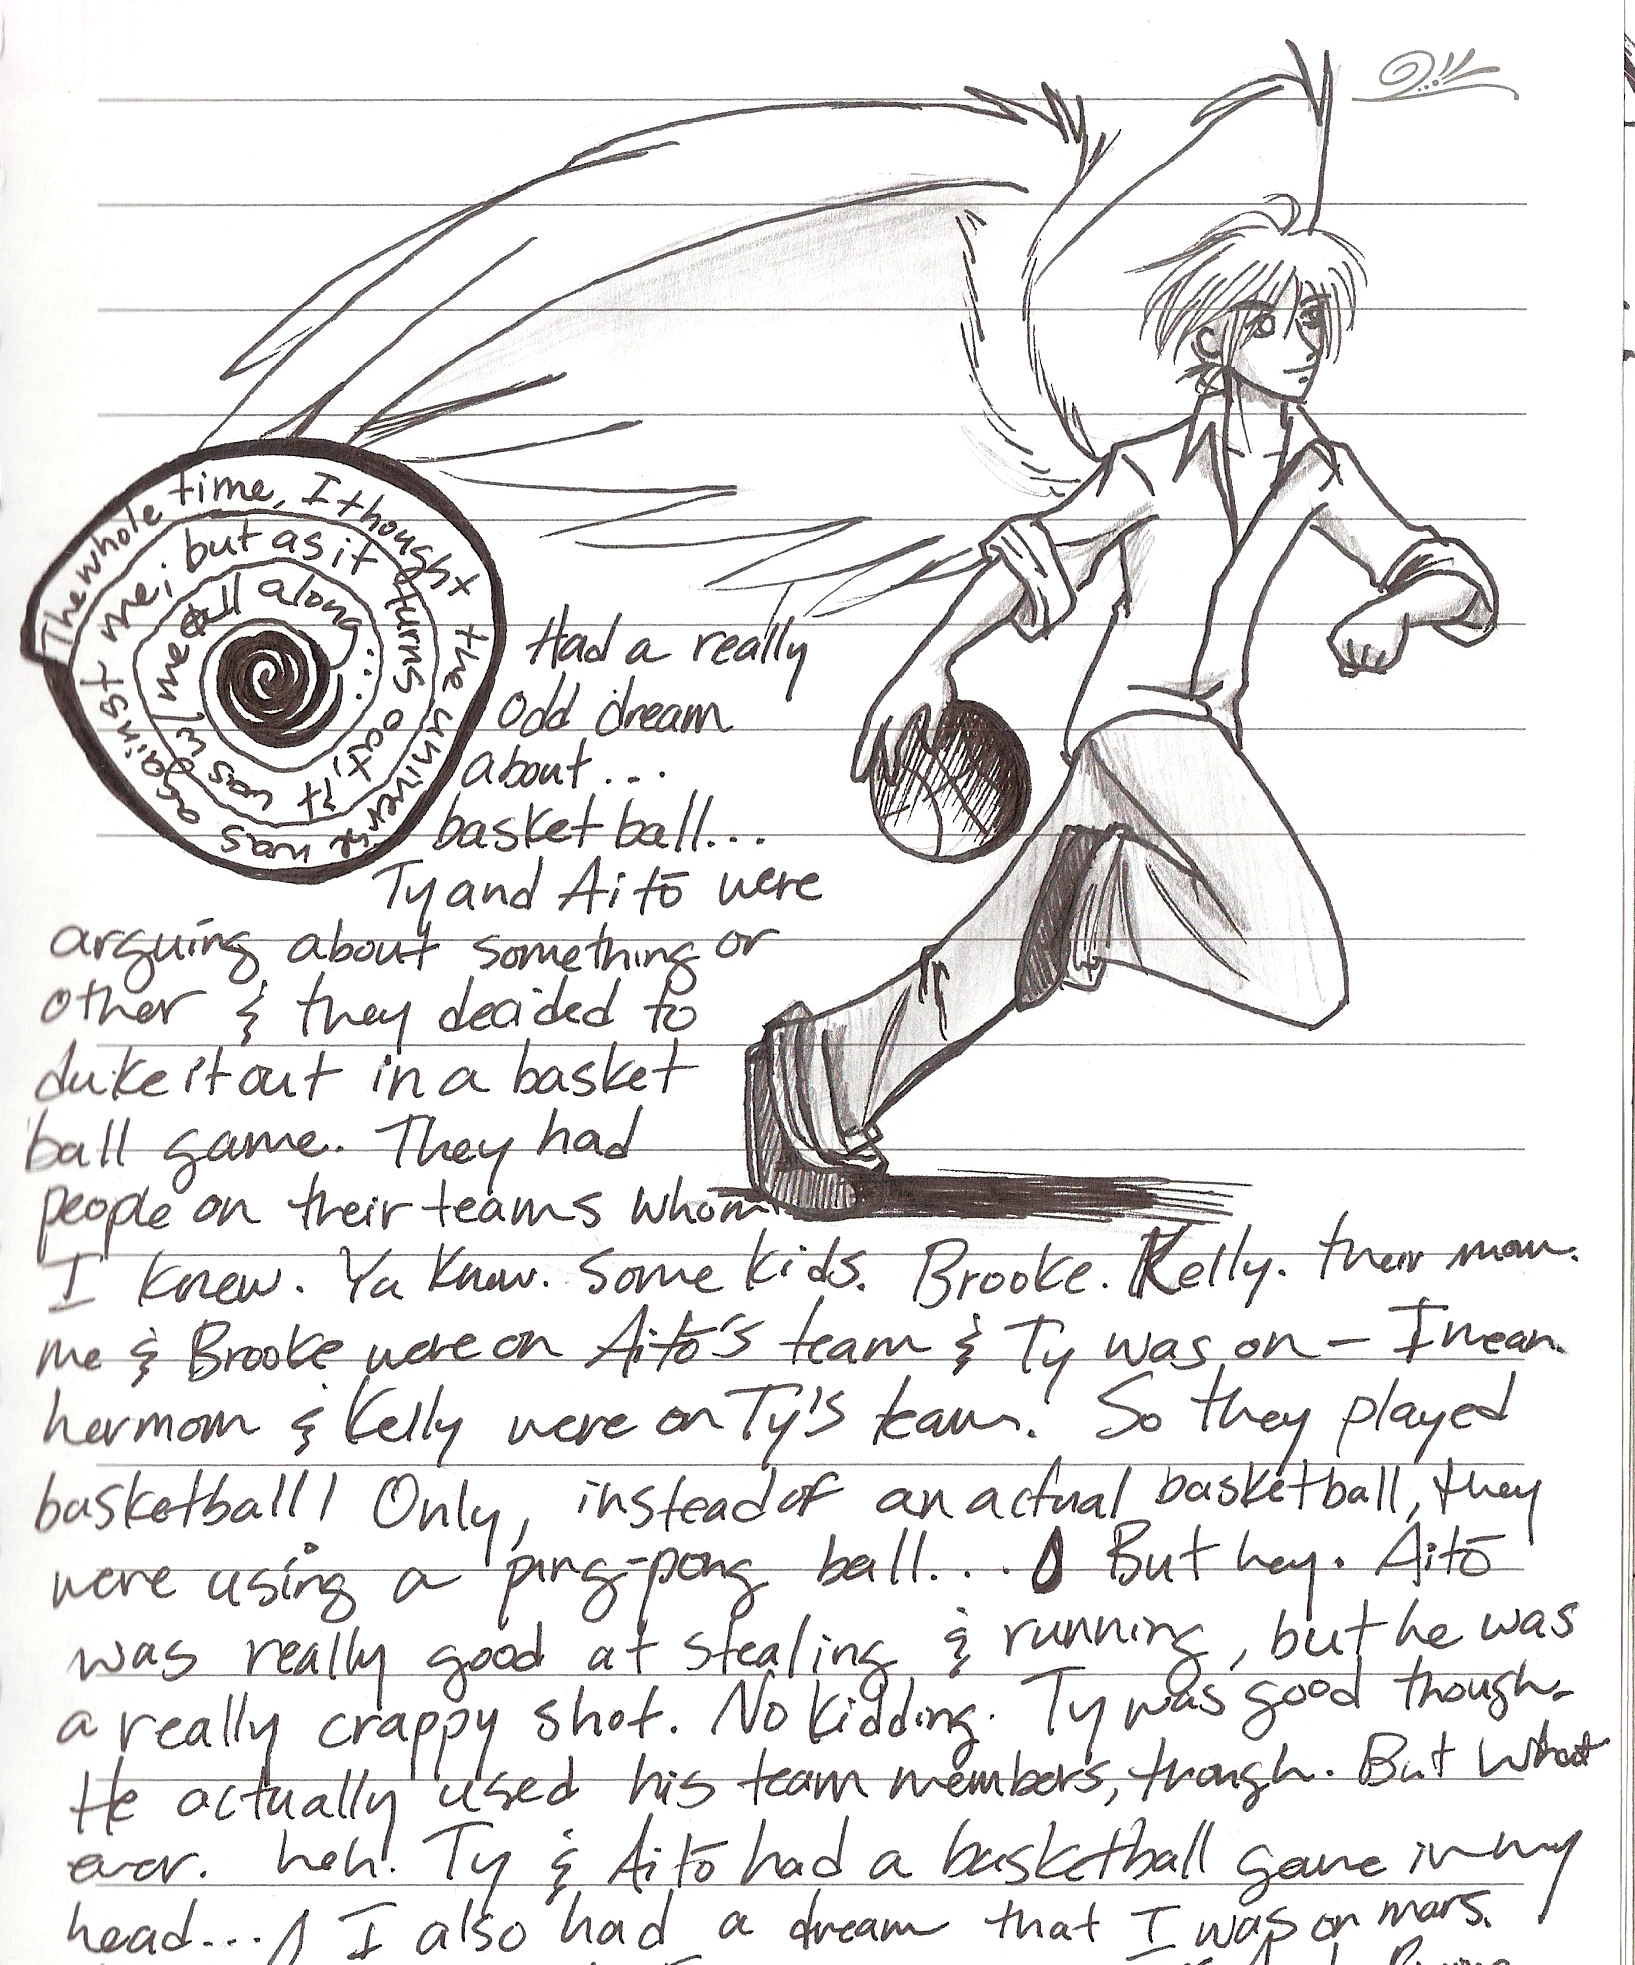 The whole time, I thought the universe was against me; but as it turns out, it was w/ me all along...
Had a really
odd dream
about...
basketball...
Ty and Aitō were
arguing about something or
other & they decided to
duke it out in a basket
ball game. They had
people on their teams whom
I knew. Ya know. Some kids. Brooke. Kelly. their mom.
me & Brooke were on Aitō's team & Ty was on — I mean
her mom & Kelly were on Ty's team. So they played
basketball! Only, instead of an actual basketball, they
were using a ping-pong ball... But hey. Aitō
was really good at stealing & running, but he was
a really crappy shot. No kidding. Ty was good though.
He actually used his team members, though. But what
ever. heh. Ty & Aitō had a basketball game in my
head... I also had a dream that I was on mars.